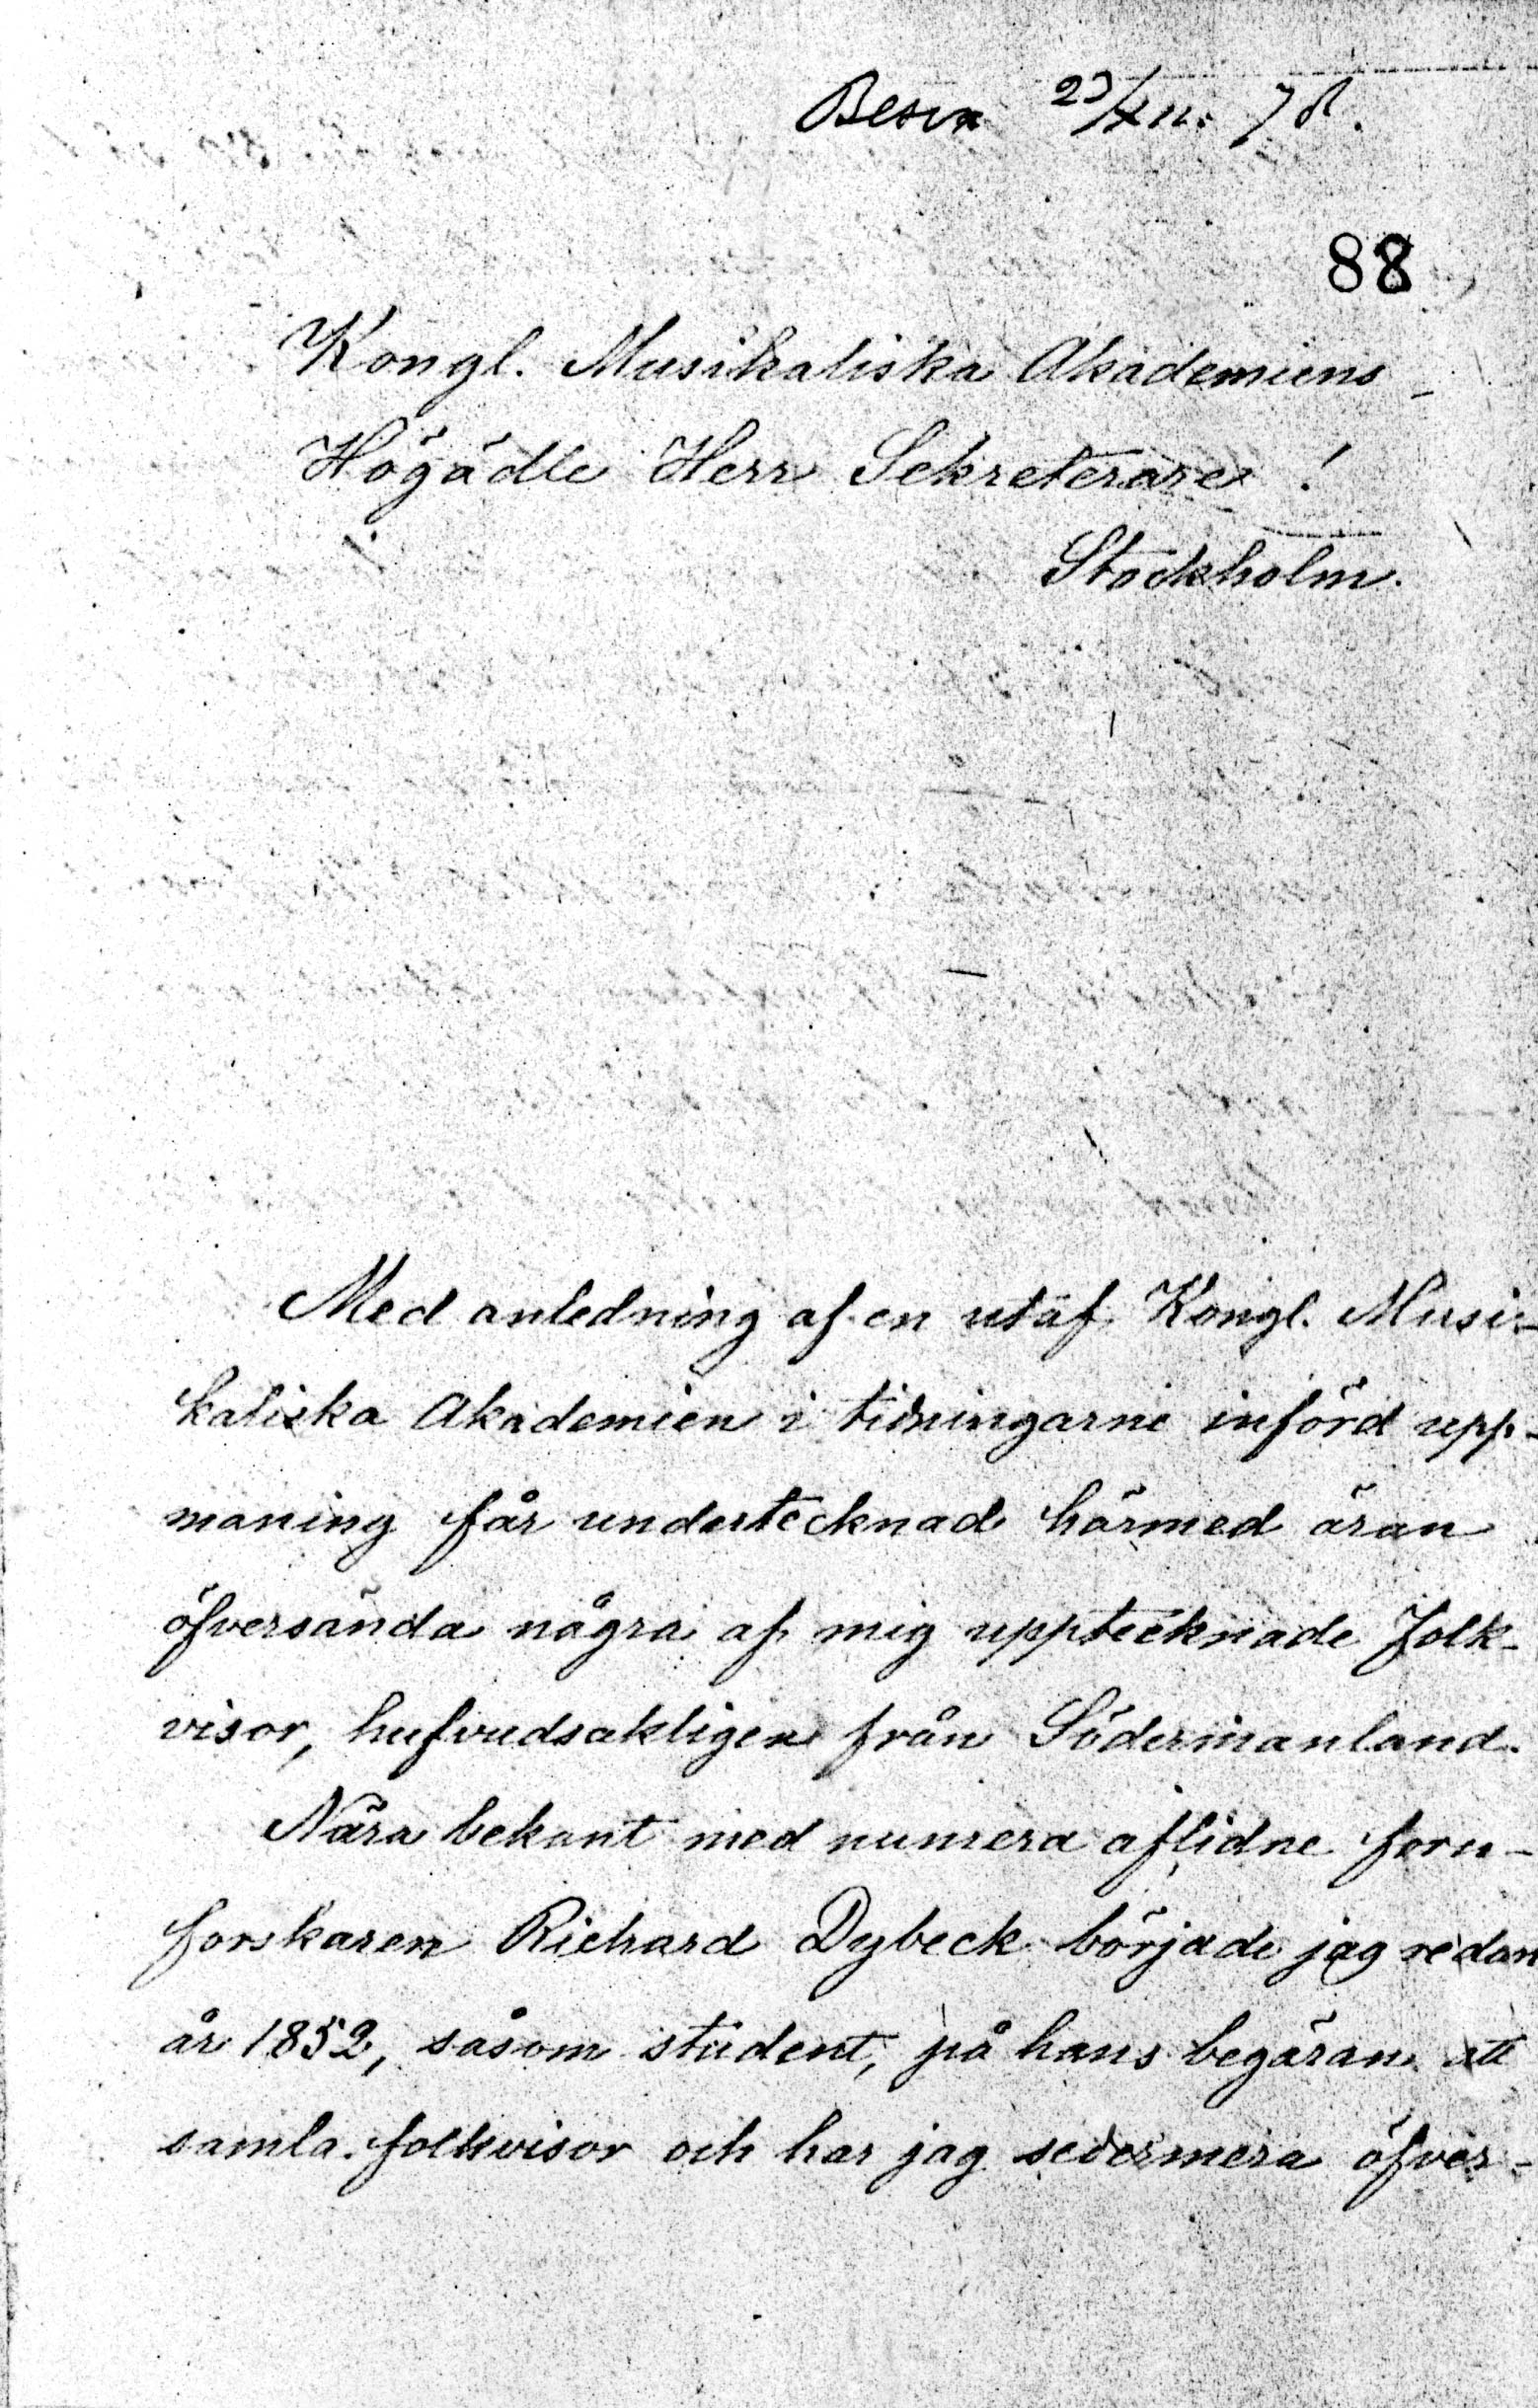 Besv. 23/XII. 78.
88
Kongl. Musikaliska Akademiens
Högädle Herr Sekreterare !
Stockholm.
Med anledning af en utaf Kongl. Musi-
kaliska Akademien i tidningarne införd upp-
maning får undertecknad härmed äran
öfversända några af mig upptecknade Folk-
visor, hufvudsakligen från Södermanland.
Nära bekant med numera aflidne forn-
forskaren Richard Dybeck började jag redan
år 1852, såsom student, på hans begäran att
samla folkvisor och har jag sedermera öfver-